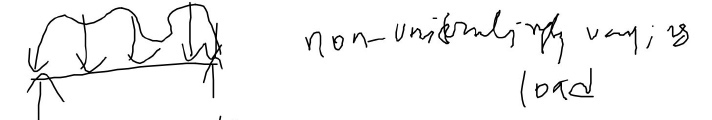 non-uniformly varying
load